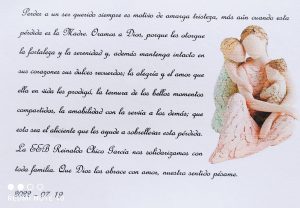 Perder a un ser querido siempre es motivo de amarga tristeza, más aún cuando esta
pérdida es la Madre. Oramos a Dios, porque les otorgue
la fortaleza y la serenidad y, además mantenga intacto en
sus corazones sus dulces recuerdos; la alegría y el amor que
ella en vida les prodigó, la ternura de los bellos momentos
compartidos, la amabilidad con la servía a los demás; que
esto sea el aliciente que les ayude a sobrellevar esta pérdida.
La EEB Reinaldo Chico García nos solidarizamos con
toda familia. Que Dios los abrace con amor, nuestro sentido pésame.
2022 - 07 - 19